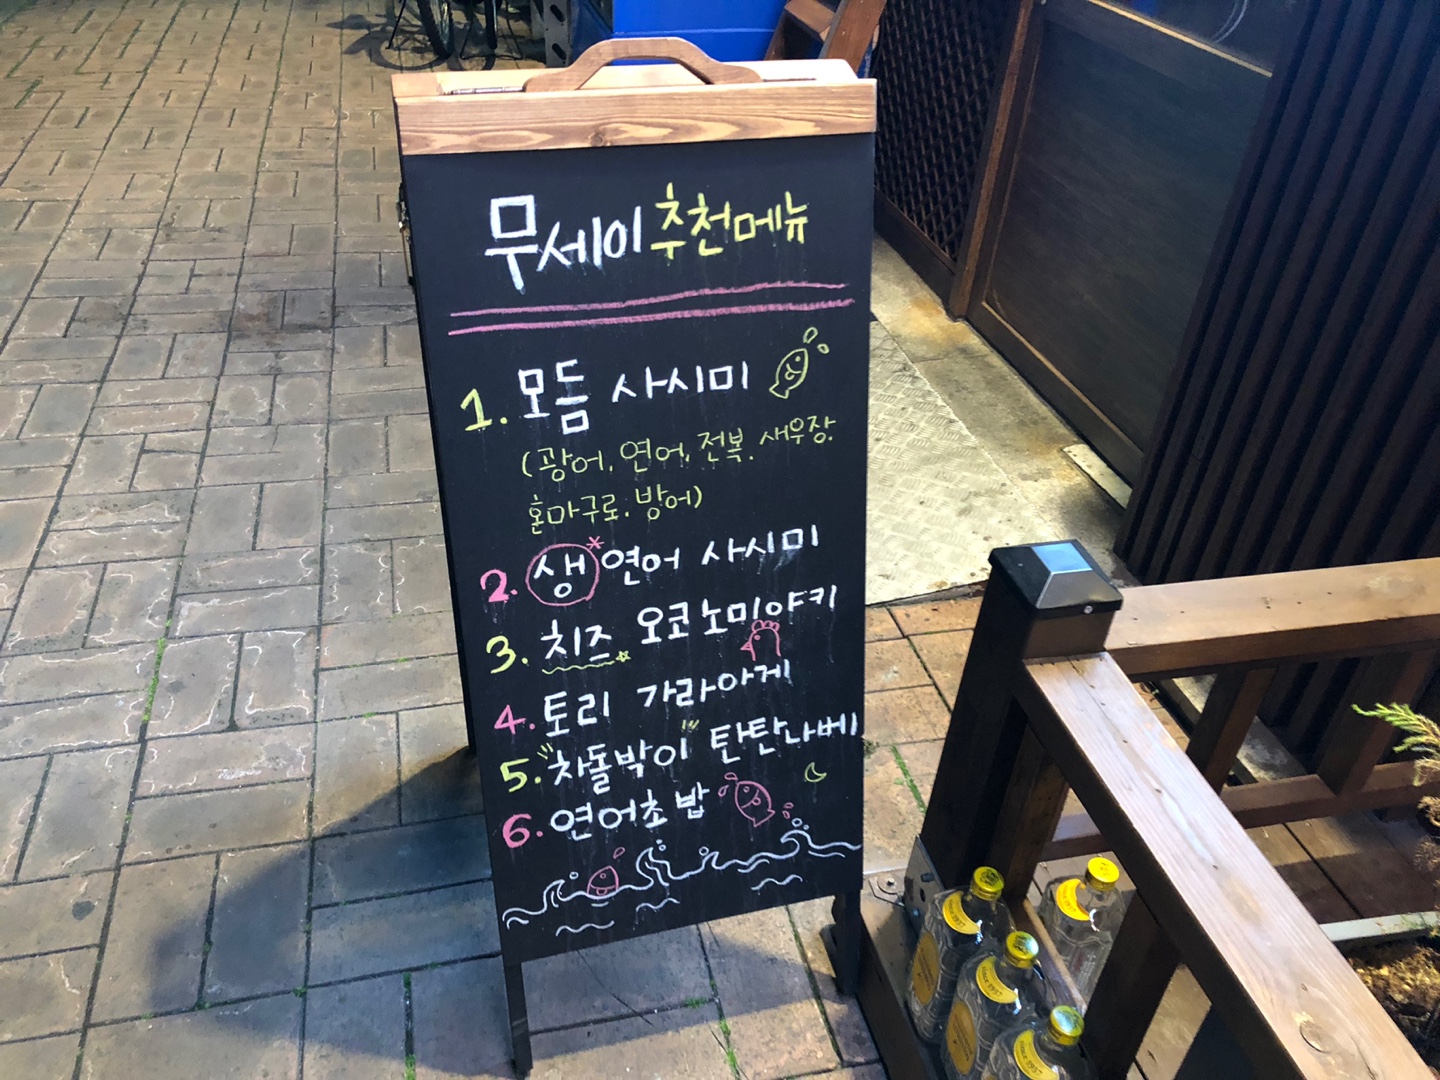 무세이 추천메뉴
1. 모듬 사시미
(광어, 연어, 전복, 새우장,
혼마구로, 방어)
2. 생*연어 사시미
3. 치즈 오코노미야키
4. 토리 가라아게
5. "차돌박이" 탄탄나베
6. 연어초밥
SINCE 1937
SINCE 1937
SINCE 1937